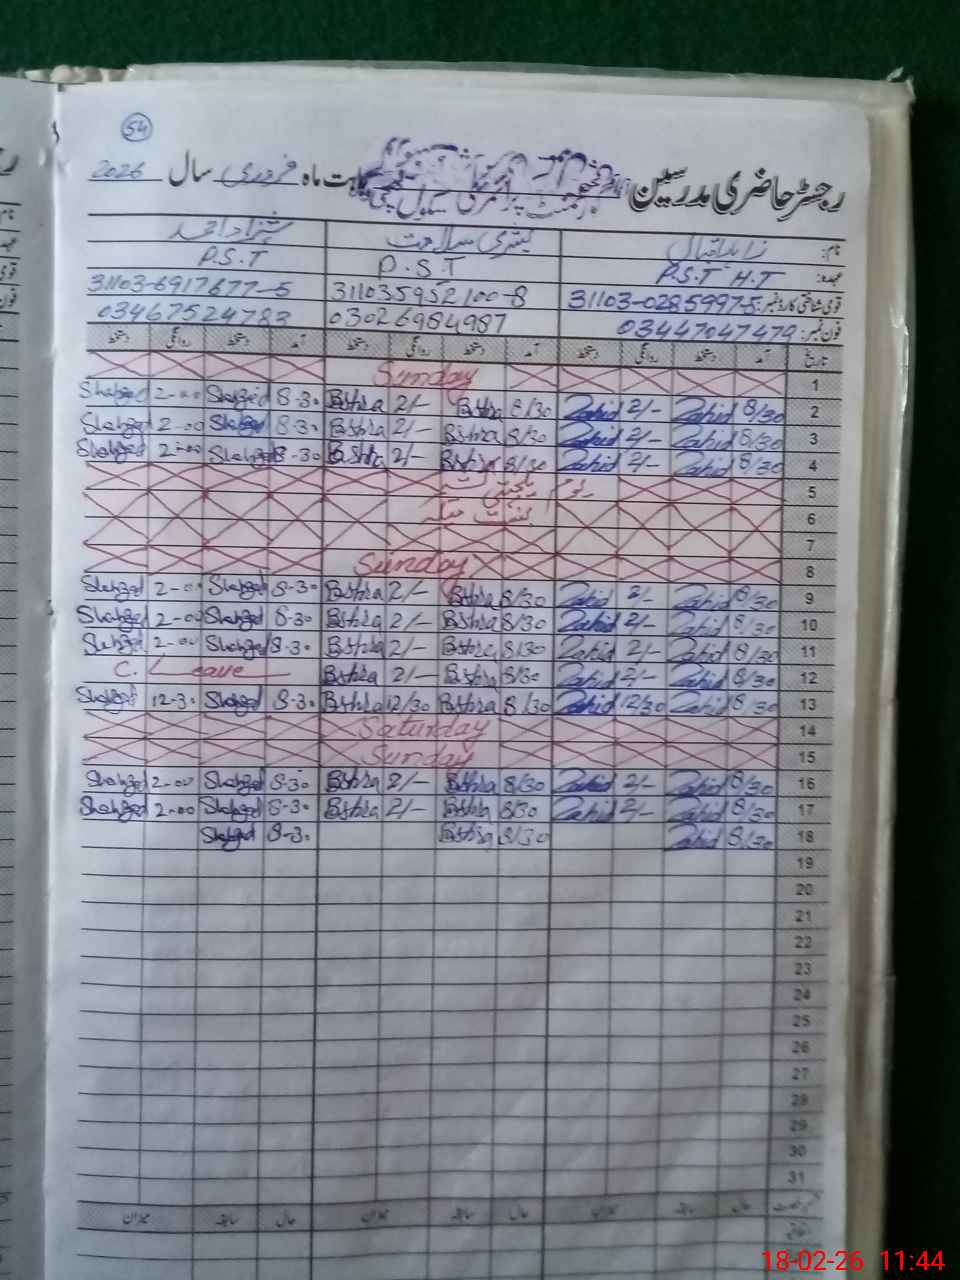 54
رجسٹر حاضری مدرسین بابت ماہ فروری سال 2026
نام: زاہد اقبال بشریٰ سلامت شہزاد احمد
عہدہ: P.S.T H.T P.S.T P.S.T
قومی شناختی کارڈ نمبر: 31103-0285997-5 311035952100-8 31103-6917677-5
فون نمبر: 03447047479 03026984987 03467524783
تاریخ آمد دستخط روانگی دستخط آمد دستخط روانگی دستخط آمد دستخط روانگی دستخط
1 Sunday
2 8/30 Zahid 2/- Zahid 8/30 Bshra 2/- Bshra 8-30 Shahzad 2-00 Shahzad
3 8/30 Zahid 2/- Zahid 8/30 Bshra 2/- Bshra 8-30 Shahzad 2-00 Shahzad
4 8/30 Zahid 2/- Zahid 8/30 Bshra 2/- Bshra 8-30 Shahzad 2-00 Shahzad
5 یوم یکجہتی
6 بسنت میلہ
7
8 Sunday
9 8/30 Zahid 2/- Zahid 8/30 Bshra 2/- Bshra 8-30 Shahzad 2-00 Shahzad
10 8/30 Zahid 2/- Zahid 8/30 Bshra 2/- Bshra 8-30 Shahzad 2-00 Shahzad
11 8/30 Zahid 2/- Zahid 8/30 Bshra 2/- Bshra 8-30 Shahzad 2-00 Shahzad
12 8/30 Zahid 2/- Zahid 8/30 Bshra 2/- Bshra C. Leave
13 8/30 Zahid 12/30 Zahid 8/30 Bshra 12/30 Bshra 8-30 Shahzad 12-30 Shahzad
14 Saturday
15 Sunday
16 8/30 Zahid 2/- Zahid 8/30 Bshra 2/- Bshra 8-30 Shahzad 2-00 Shahzad
17 8/30 Zahid 2/- Zahid 8/30 Bshra 2/- Bshra 8-30 Shahzad 2-00 Shahzad
18 8/30 Zahid 8/30 Bshra 8-30 Shahzad
19
20
21
22
23
24
25
26
27
28
29
30
31
حال سابقہ میزان حال سابقہ میزان حال سابقہ میزان
18-02-26 11:44